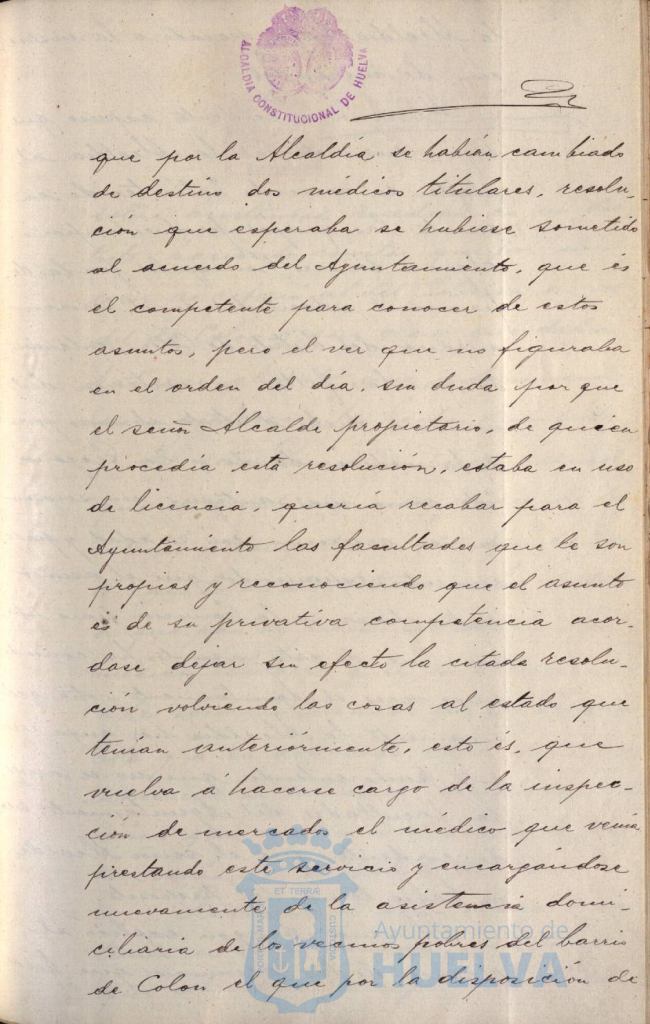 ALCALDIA CONSTITUCIONAL DE HUELVA
que por la Alcaldía se habían cambiado
de destino dos médicos titulares, resolu-
ción que esperaba se hubiese sometido
al acuerdo del Ayuntamiento, que és
el competente para conocer de estos
asuntos, pero el ver que no figuraba
en el orden del día, sin duda por que
el señor Alcalde propietario, de quien
procedía esta resolución, estaba en uso
de licencia, quería recabar para el
Ayuntamiento las facultades que le son
propias y reconociendo que el asunto
és de su privativa competencia acor-
dase dejar sin efecto la citada resolu-
ción volviendo las cosas al estado que
tenían anteriórmente, esto és, que
vuelva á hacerse cargo de la inspec-
ción de mercados el médico que venía
prestando este servicio y encargándose
nuevamente de la asistencia domi-
ciliaria de los vecinos pobres del barrio
de Colon el que por la disposición de
ET TERRÆ
Ayuntamiento de
HUELVA